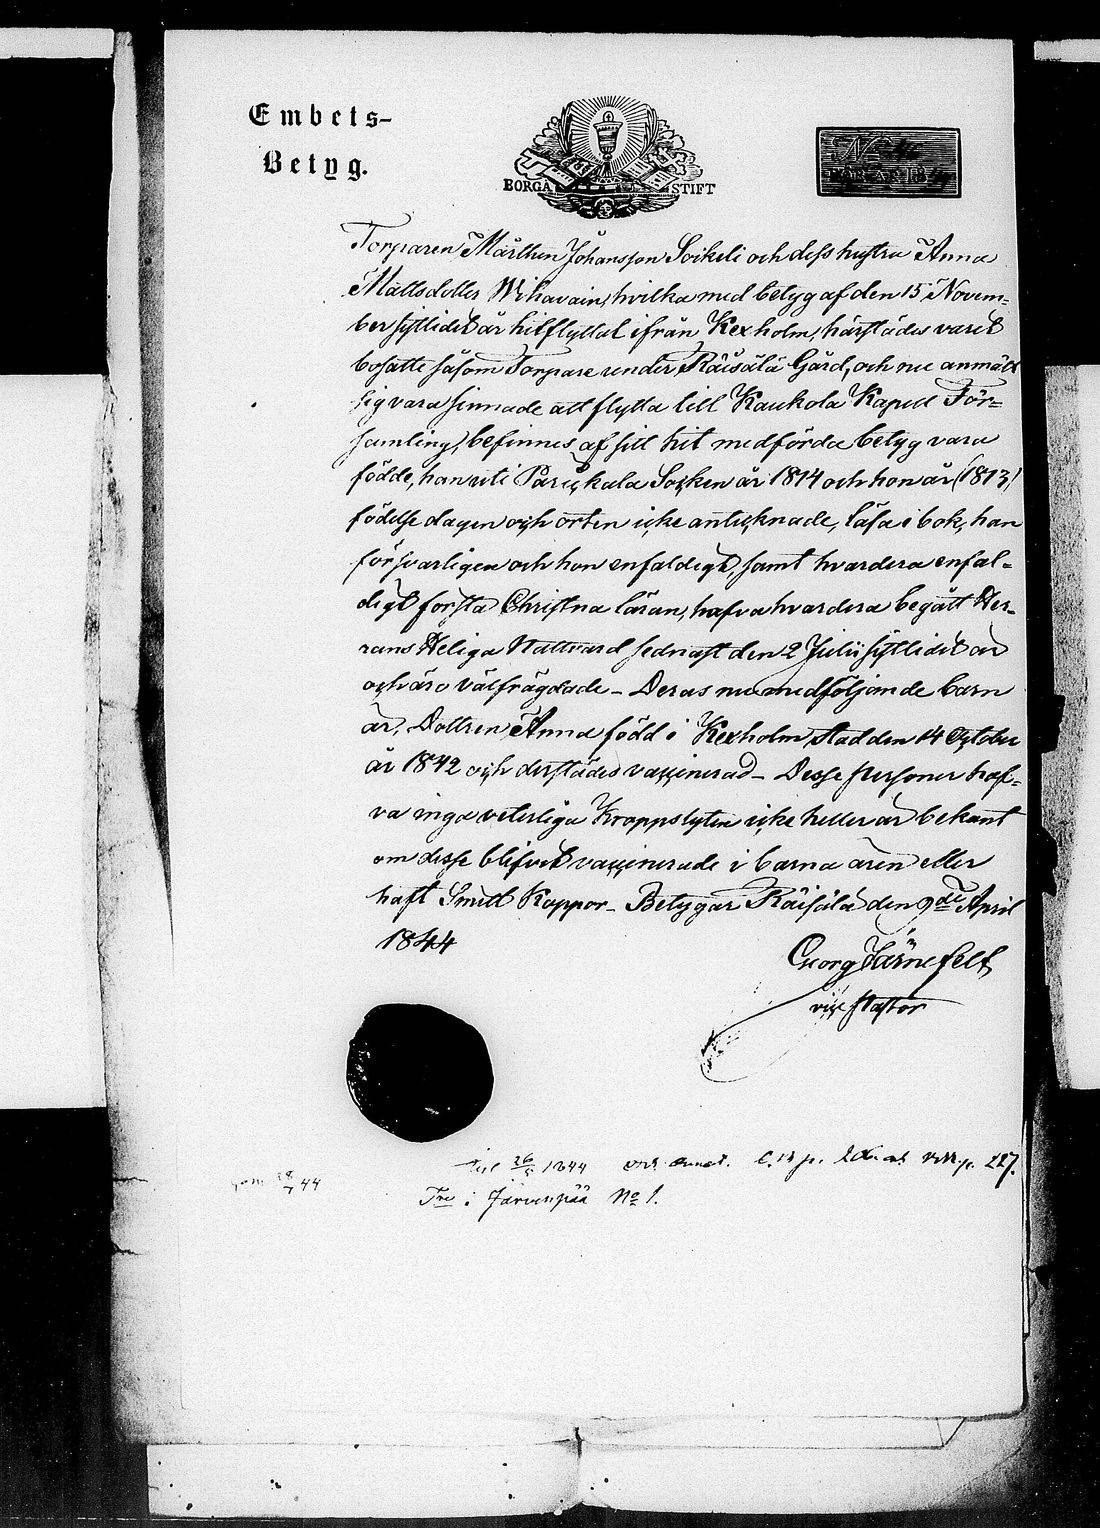 Embets-
Betyg.
BORGÅ STIFT
N
FÖR ÅR 18
Torparen Mårthen Johansson Soikeli och dess hustru Anna
Mattsdotter Wihavain, hvilka med betyg af den 15 Novem-
ber sistlidet år hitflyttat ifrån Kexholm, härstädes varit
bosatte såsom Torpare under Räisälä Gård, och nu anmält
sig vara sinnade att flytta till Kaukola Kapell För-
samling, befinnes af sitt hit medförda betyg vara
födde, han uti Parickala Socken år 1814 och hon år (1813)
födelse dagen och orten icke antecknade, läsa i bok, han
försvarligen och hon enfaldigt, samt hvardera enfal-
digt förstå Christna läran, hafva hvardera begått Her-
rans Heliga Nattvard sednast den 2 Julii sistlidet år
och äro välfrägdade – Deras nu medföljande barn
är, Dottren Anna född i Kexholms stad den 14 October
år 1842 och derstädes vaccinerad – Desse personer haf-
va inga veterliga Kroppslyten icke heller är bekant
om desse blifvit vaccinerade i barna åren eller
haft Smitt Koppor – Betygar Räisälä den 9de April
1844
Georg Järnefelt
vice Pastor
26/5 1844 p. 227.
28/7 44
i Järvenpää No 1.